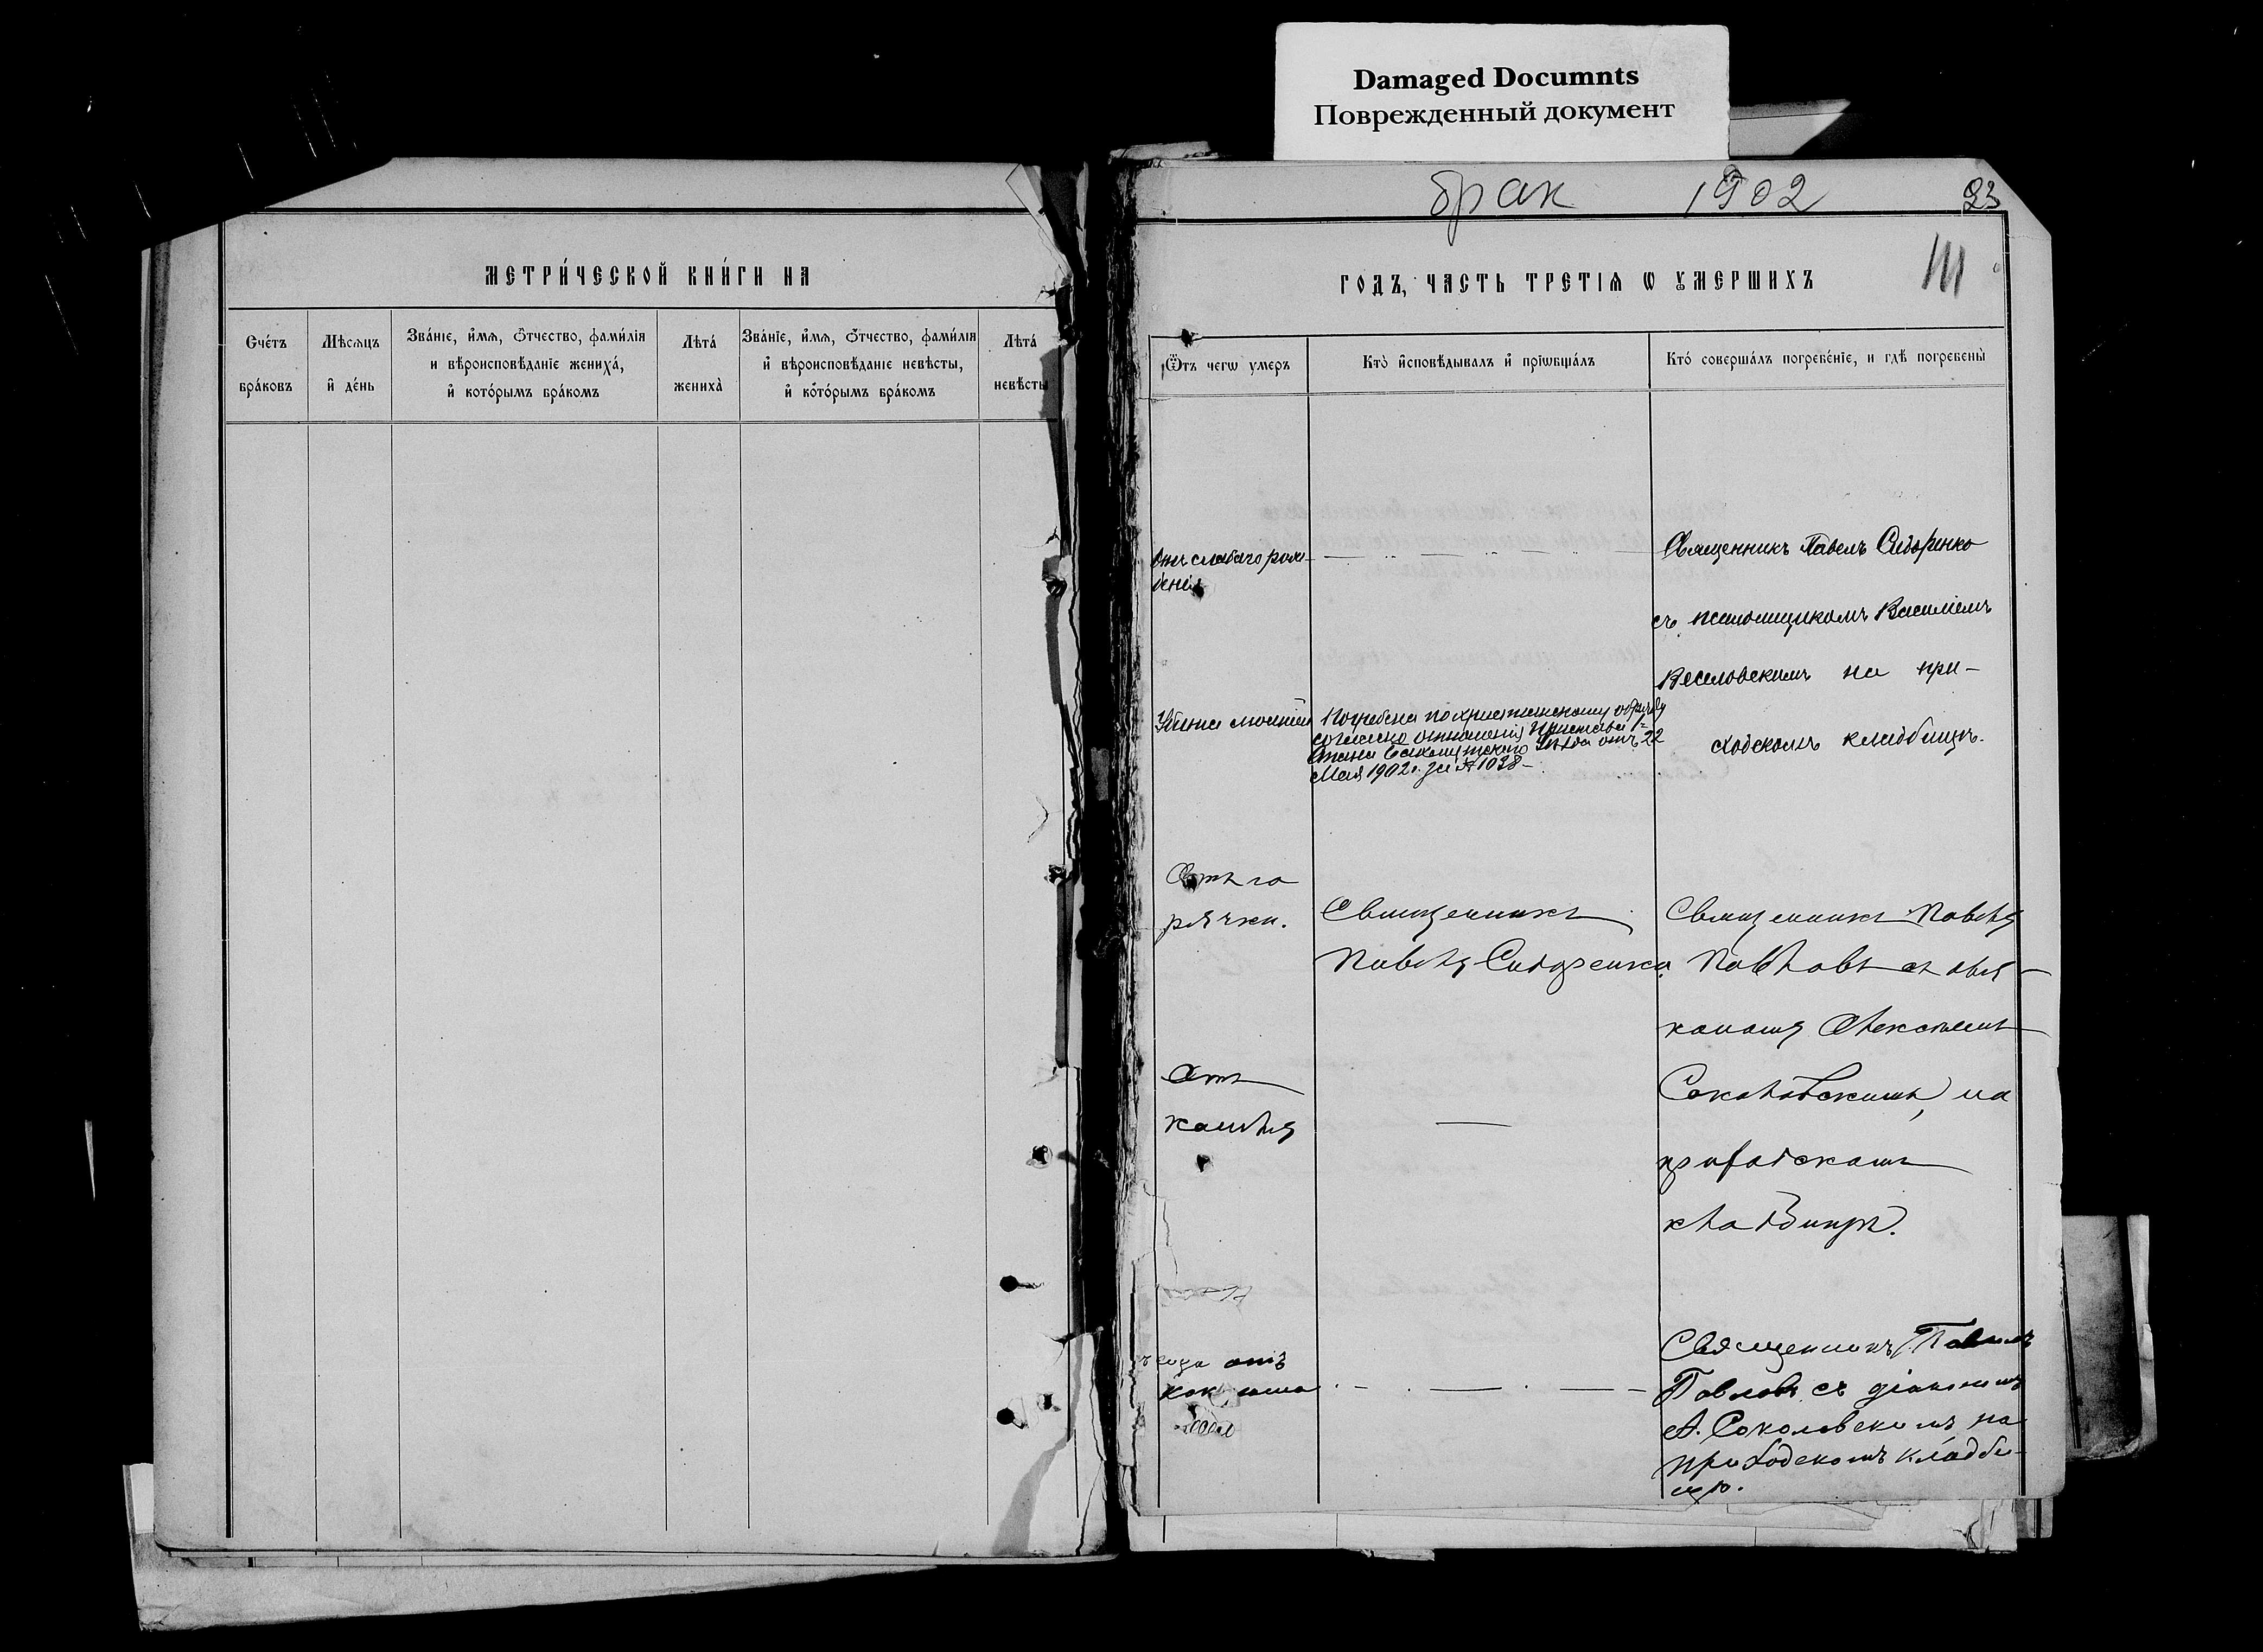 Damaged Documnts
Поврежденный документ
брак 1902 23
111
МЕТРИ́ЧЕСКОЙ КНИ́ГИ НА
ГОДЪ, ЧАСТЬ ТРЕТІѦ Ѡ ОУМЕРШИХЪ
Сче́тъ
бра́ковъ
Мѣсѧцъ
и҆ де́нь
Зва́нїе, и҆́мѧ, ѻ҆́тчество, фами́лїѧ
и вѣроисповѣ́данїе жениха́,
и҆ кото́рымъ бра́комъ
Лѣта́
жениха̀
Зва́нїе, и҆́мѧ, ѻ҆́тчество, фами́лїѧ
и҆ вѣроисповѣ́данїе невѣ́сты,
и҆ кото́рымъ бра́комъ
Лѣта́
невѣ́сты
Ѿ чегѡ ᲂумеръ
Кто̀ и҆сповѣ́дывалъ и҆ прїѡбща́лъ
Кто́ соверша́лъ погребе́нїе, и гдѣ̀ погребены̀
Отъ слабаго рож-
денія
Священникъ Павелъ Сидоренко
съ псаломщикомъ Василіемъ
Веселовскимъ на при-
ходскомъ кладбищѣ.
Убита молніей
Погребена по христіанскому обряду
согласно отношенія Пристава 1
Стана уѣзда отъ 22
Мая 1902 г. за № 1038 –
Отъ го
рячки.
Священникъ
Павелъ Сидоренко.
Священникъ Павелъ
Павловъ съ дья-
кономъ Алексѣемъ
Соколовскимъ, на
приходскомъ
кладбищѣ.
Отъ
кашля
—
отъ
Священникъ Павелъ
Павловъ съ діакономъ
А. Соколовскимъ на
приходскомъ кладби-
щѣ.